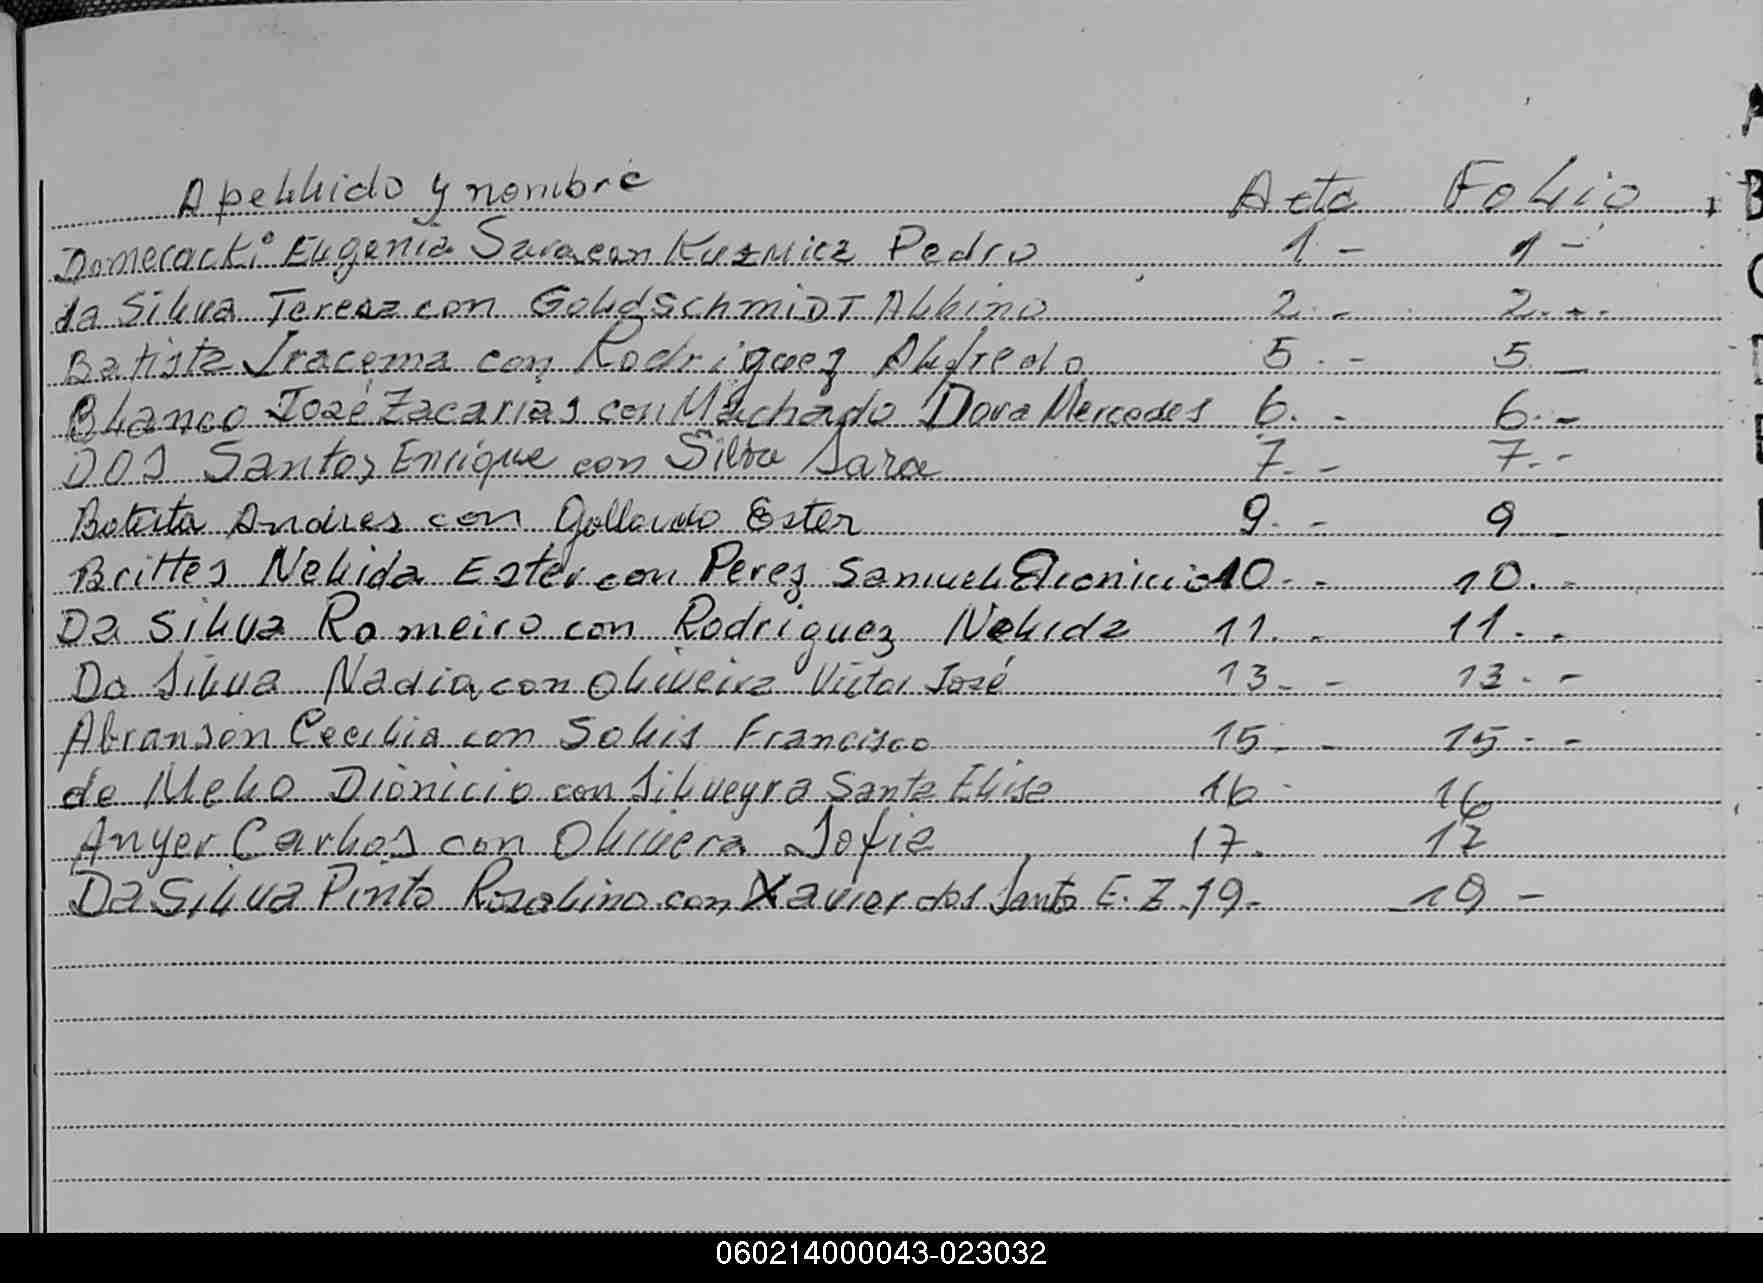 Apellido y nombre Acta Folio
Domeracki Eugenia Sara con Kuzmicz Pedro 1.- 1-
da Silva Teresa con Goldschmidt Albino 2.- 2.-
Batista Iracema con Rodriguez Alfredo 5.- 5-
Blanco José Zacarias con Machado Dora Mercedes 6.- 6.-
Dos Santos Enrique con Silva Sara 7.- 7.-
Batista Andres con Gallardo Ester 9.- 9
Brittes Nelida Ester con Perez Samuel Dionicio 10.- 10.-
Da Silva Romeiro con Rodriguez Nelida 11.- 11.-
Da Silva Nadia con Oliveira Victor José 13.- 13.-
Abranson Cecilia con Solis Francisco 15.- 15.-
de Melo Dionicio con Silveyra Santa Elisa 16- 16
Anyer Carlos con Olivera Sofia 17. 17
Da Silva Pinto Rosalino con Xavier dos Santo E. Z. 19- 19-
060214000043-023032